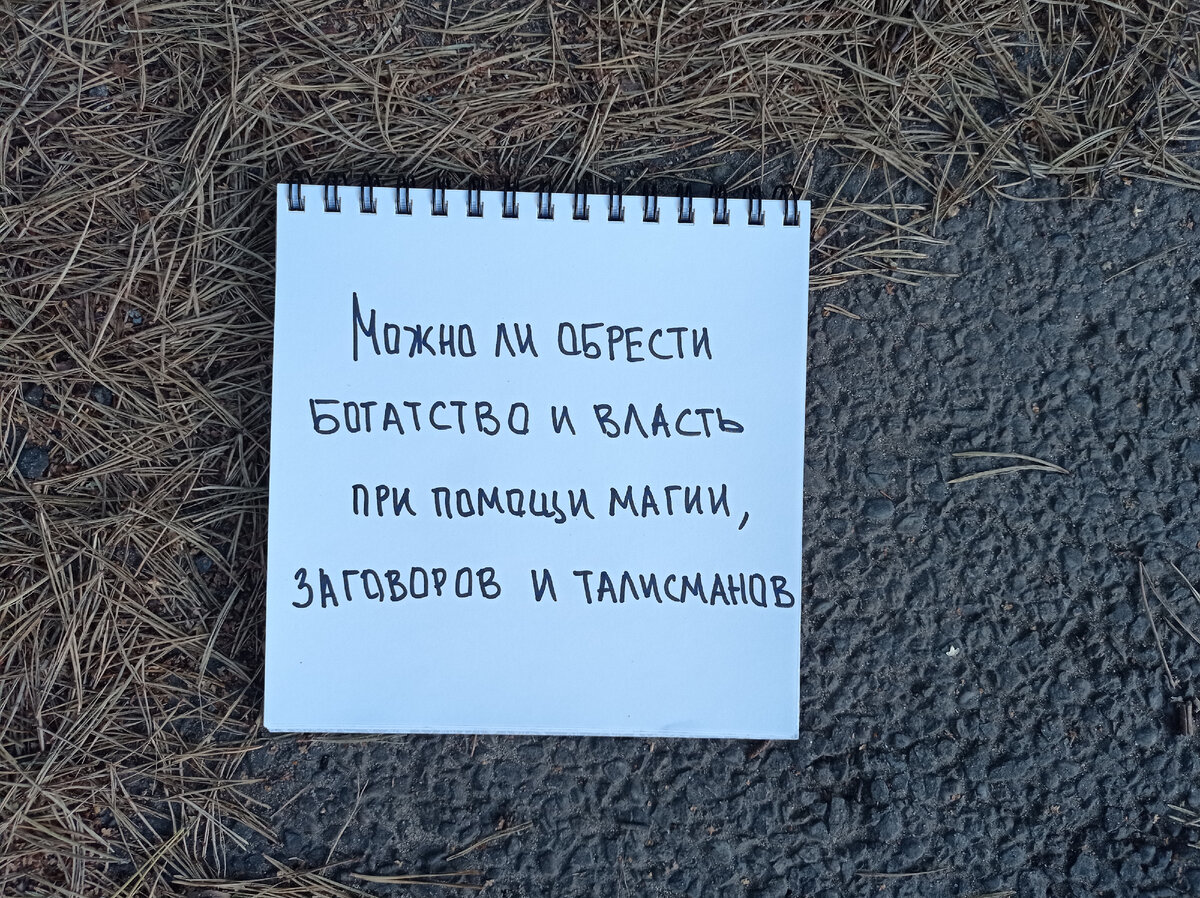 Можно ли обрести
богатство и власть
при помощи магии,
заговоров и талисманов